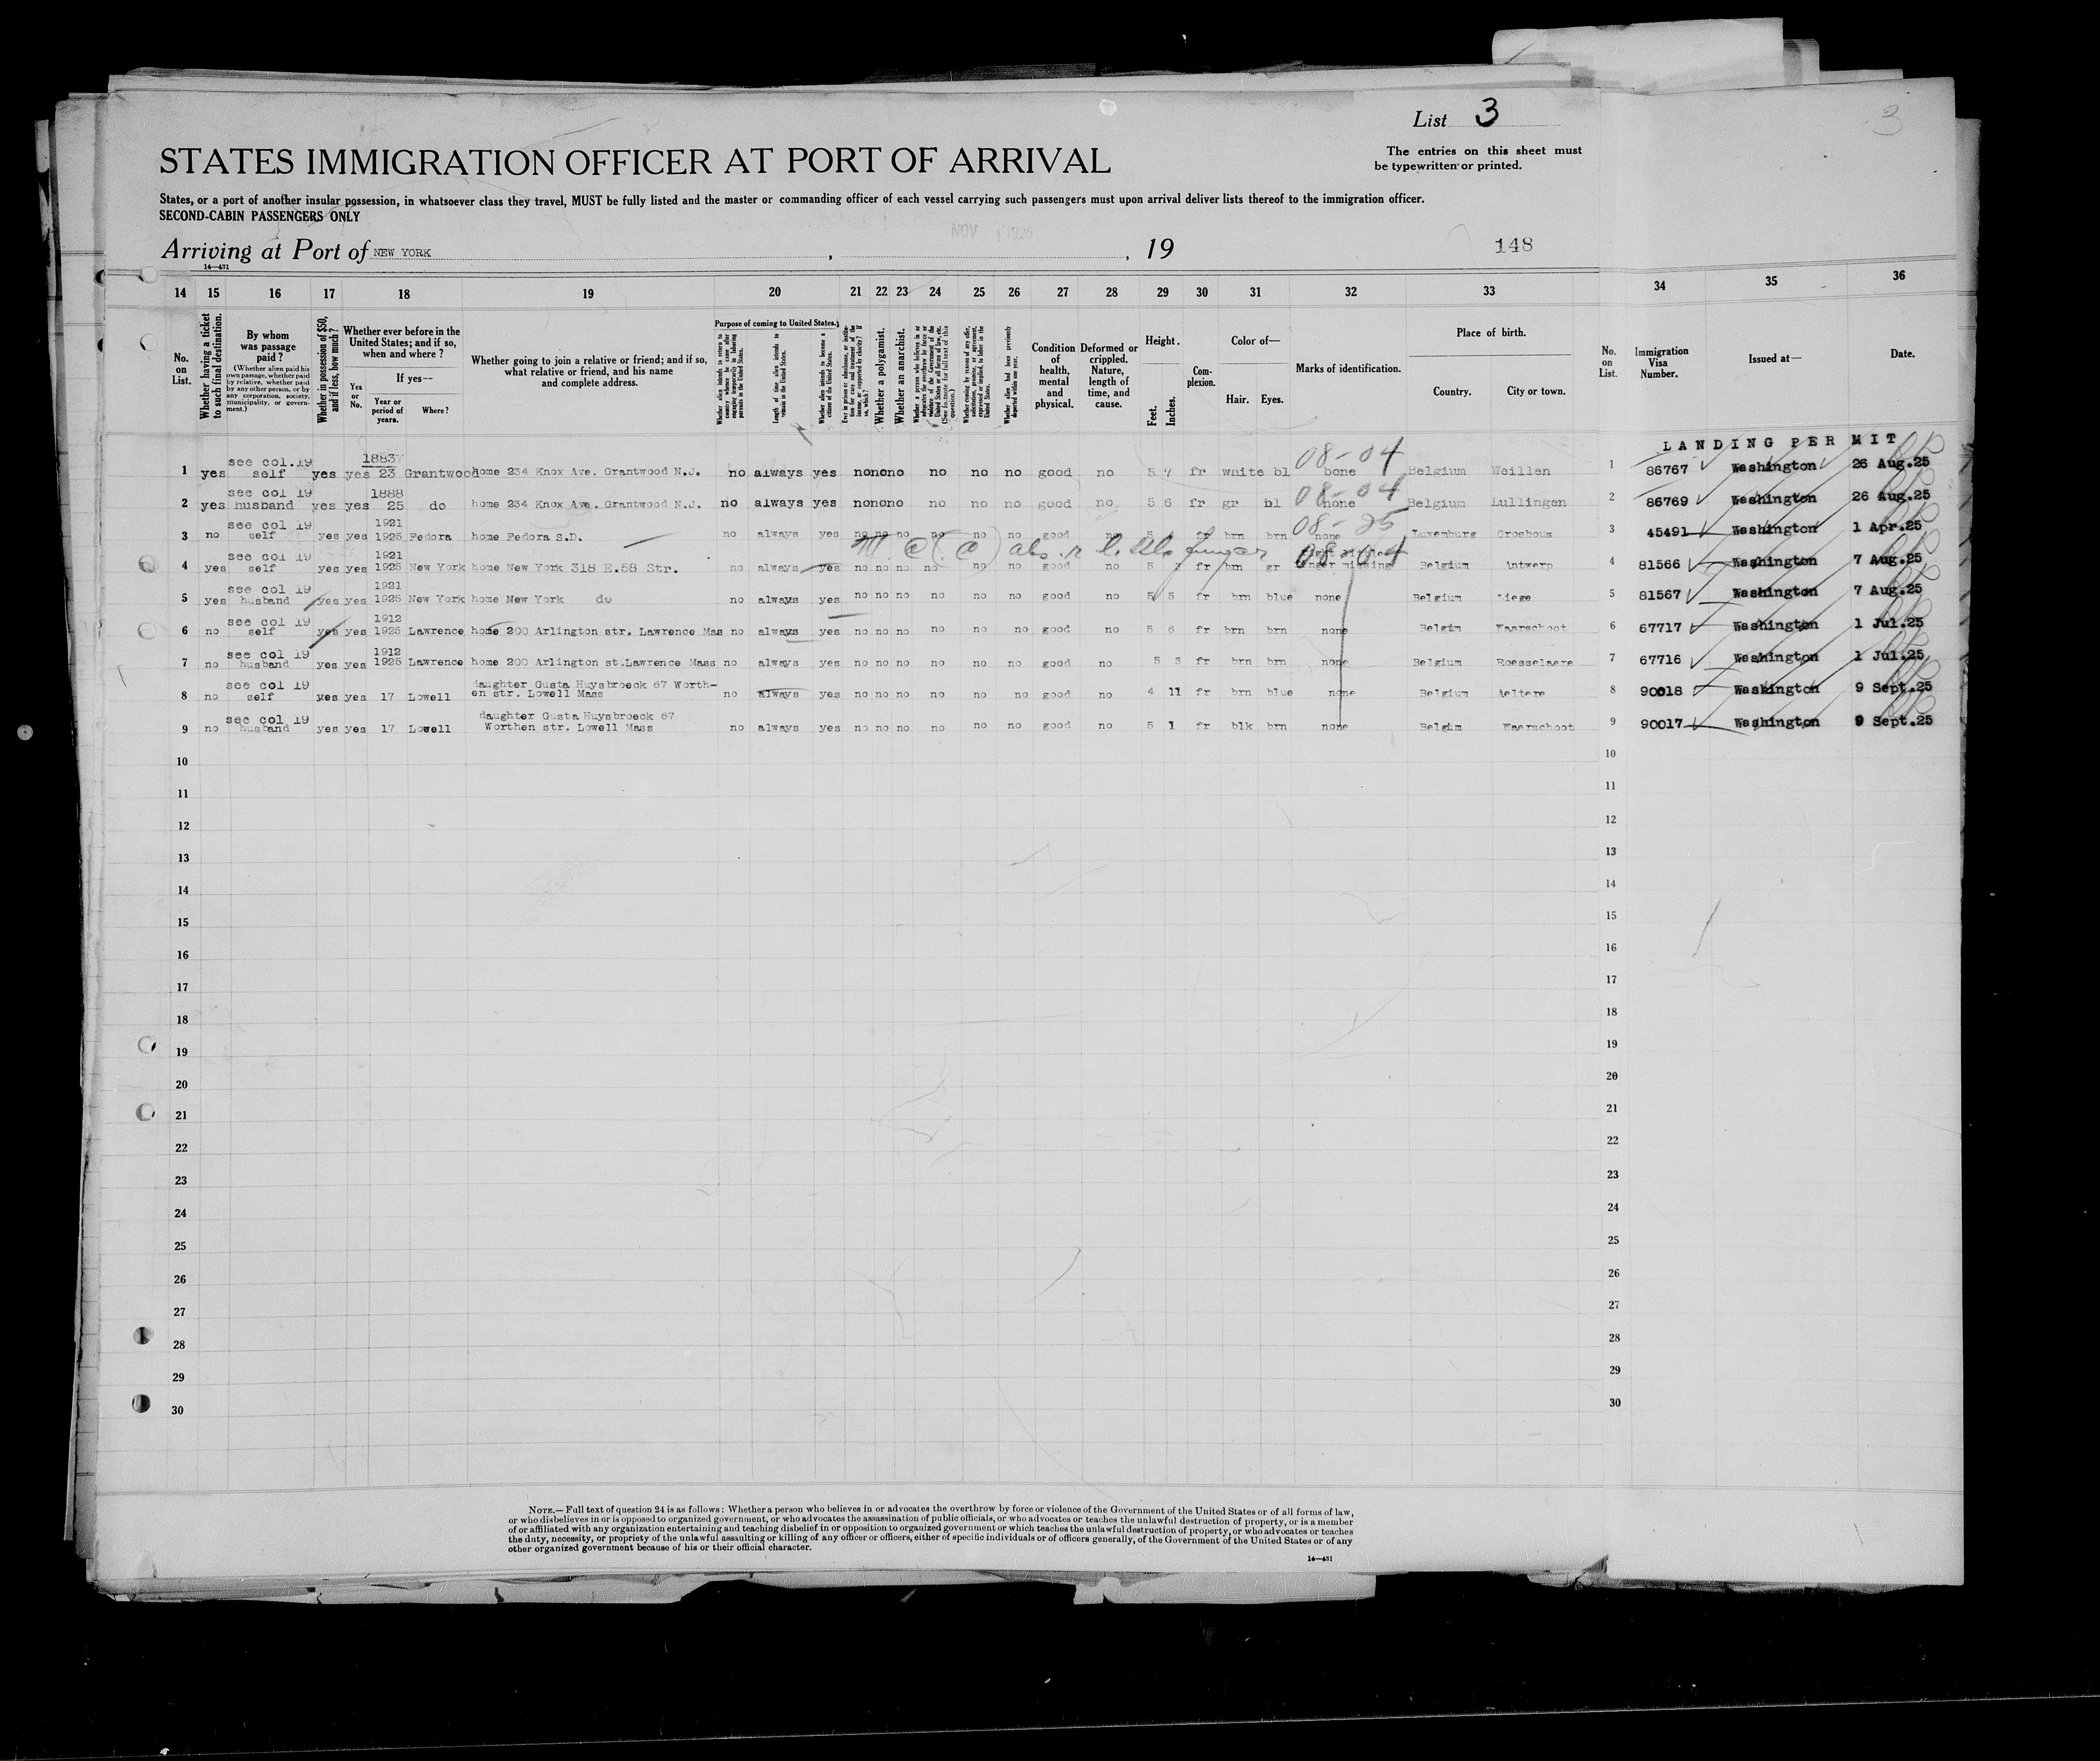 List 3
3
STATES IMMIGRATION OFFICER AT PORT OF ARRIVAL
The entries on this sheet must
be typewritten or printed.
States, or a port of another insular possession, in whatsoever class they travel, MUST be fully listed and the master or commanding officer of each vessel carrying such passengers must upon arrival deliver lists thereof to the immigration officer.
SECOND-CABIN PASSENGERS ONLY
Arriving at Port of NEW YORK , NOV 1925 , 19 148
14—431
14 15 16 17 18 19 20 21 22 23 24 25 26 27 28 29 30 31 32 33 34 35 36
No. on List.
Whether having a ticket to such final destination.
By whom was passage paid?
(Whether alien paid his own passage, whether paid by relative, whether paid by any other person, or by any corporation, society, municipality, or government.)
Whether in possession of $50, and if less, how much?
Whether ever before in the United States; and if so, when and where?
Yes or No.
If yes—
Year or period of years.
Where?
Whether going to join a relative or friend; and if so, what relative or friend, and his name and complete address.
Purpose of coming to United States.
Length of time alien intends to remain in the United States.
Whether alien intends to become a citizen of the United States.
Whether a polygamist.
Whether an anarchist.
Condition of health, mental and physical.
Deformed or crippled. Nature, length of time, and cause.
Height.
Feet.
Inches.
Complexion.
Color of—
Hair.
Eyes.
Marks of identification.
Place of birth.
Country.
City or town.
No. on List.
Immigration Visa Number.
Issued at—
Date.
LANDING PERMIT
see col.19 1883 08-04
1 yes self yes yes 23 Grantwood home 234 Knox Ave. Grantwood N.J. no always yes no no no no no no good no 5 7 fr white bl bone Belgium Weillen 1 86767 Washington 26 Aug.25
see col 19 1888 08-04
2 yes husband yes yes 25 do home 234 Knox Ave. Grantwood N.J. no always yes no no no no no no good no 5 6 fr gr bl none Belgium Lullingen 2 86769 Washington 26 Aug.25
see col 19 1921 08-25
3 no self yes yes 1925 Fedora home Fedora S.D. no always yes no no no no no no good no 5 fr brn brn none Luxemburg Grosbous 3 45491 Washington 1 Apr.25
see col 19 1921 abs. r. little finger 08-04
4 yes self yes yes 1925 New York home New York 318 E.58 Str. no always yes no no no no no no good no 5 fr brn gr finger missing Belgium Antwerp 4 81566 Washington 7 Aug.25
see col 19 1921
5 yes husband yes yes 1925 New York home New York do no always yes no no no no no no good no 5 5 fr brn blue none Belgium Liege 5 81567 Washington 7 Aug.25
see col 19 1912
6 no self yes yes 1925 Lawrence home 200 Arlington str. Lawrence Mas no always yes no no no no no no good no 5 6 fr brn brn none Belgim Waarschoot 6 67717 Washington 1 Jul.25
see col 19 1912
7 no husband yes yes 1925 Lawrence home 200 Arlington st.Lawrence Mass no always yes no no no no no no good no 5 3 fr brn brn none Belgium Roesselaere 7 67716 Washington 1 Jul.25
see col 19 daughter Gusta Huysbroeck 67 Worth-
8 no self yes yes 17 Lowell en str. Lowell Mass no always yes no no no no no no good no 4 11 fr brn blue none Belgium Aeltere 8 90018 Washington 9 Sept.25
see col 19 daughter Gusta Huysbroeck 67
9 no husband yes yes 17 Lowell Worthen str. Lowell Mass no always yes no no no no no no good no 5 1 fr blk brn none Belgim Waerschoot 9 90017 Washington 9 Sept.25
10 10
11 11
12 12
13 13
14 14
15 15
16 16
17 17
18 18
19 19
20 20
21 21
22 22
23 23
24 24
25 25
26 26
27 27
28 28
29 29
30 30
NOTE.—Full text of question 24 is as follows: Whether a person who believes in or advocates the overthrow by force or violence of the Government of the United States or of all forms of law,
or who disbelieves in or is opposed to organized government, or who advocates the assassination of public officials, or who advocates or teaches the unlawful destruction of property, or is a member
of or affiliated with any organization entertaining and teaching disbelief in or opposition to organized government or which teaches the unlawful destruction of property, or who advocates or teaches
the duty, necessity, or propriety of the unlawful assaulting or killing of any officer or officers, either of specific individuals or of officers generally, of the Government of the United States or of any
other organized government because of his or their official character.
14—431